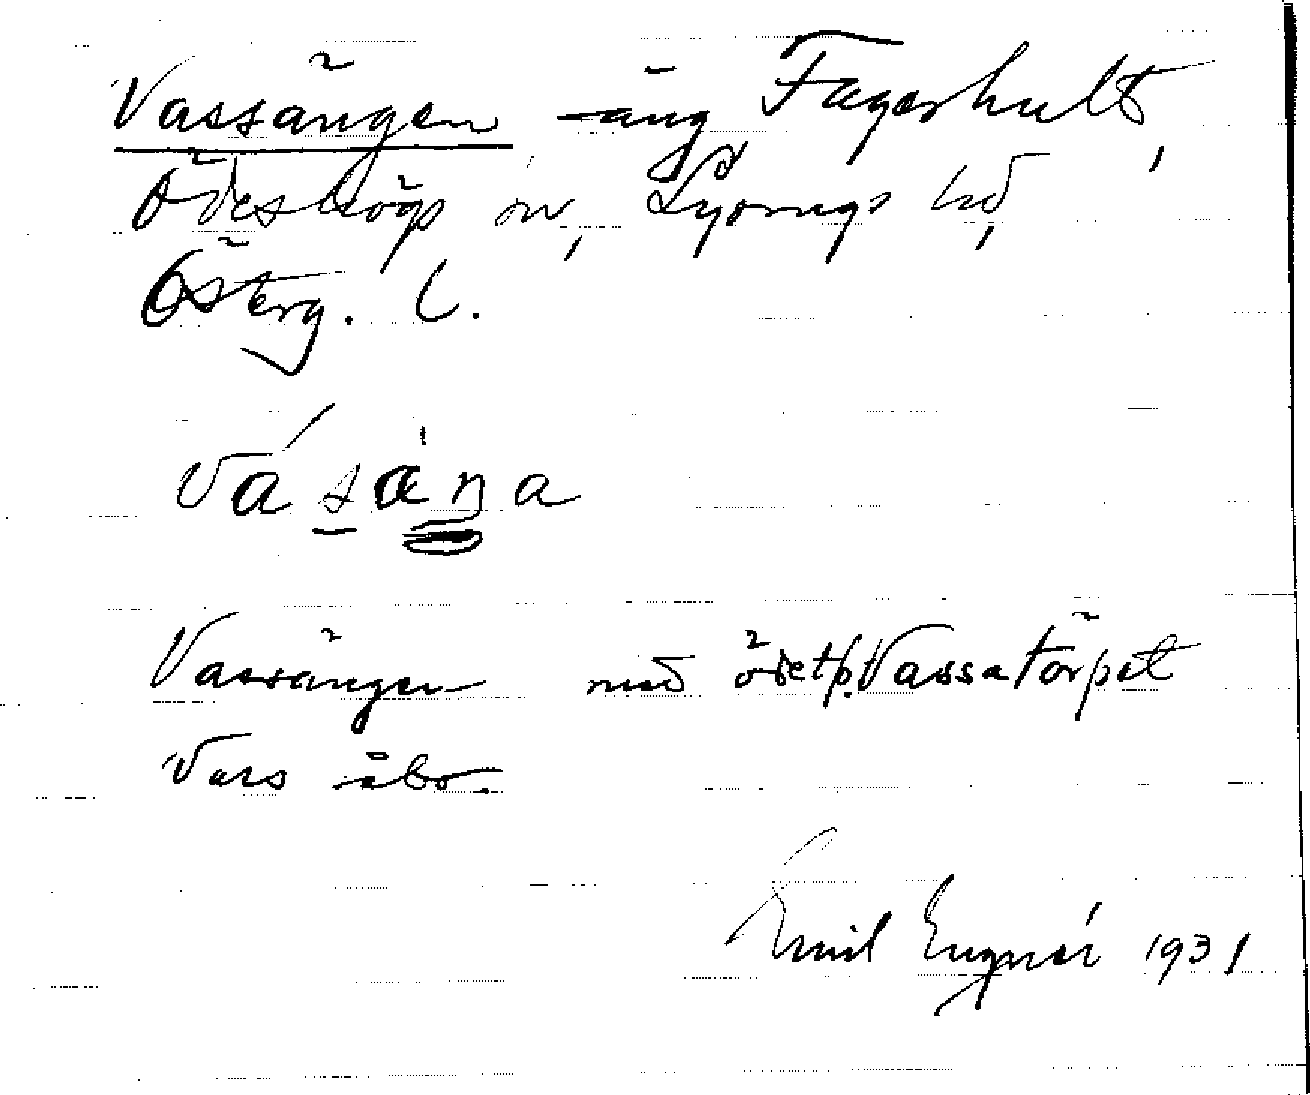 Vassängen äng Fagerhult,
Ödeshögs sn, Lysings hd,
Österg. L.
vásàŋa
Vassängen med ödetp. Vassatörpet
Vass åbo.
Emil Engnér 1931